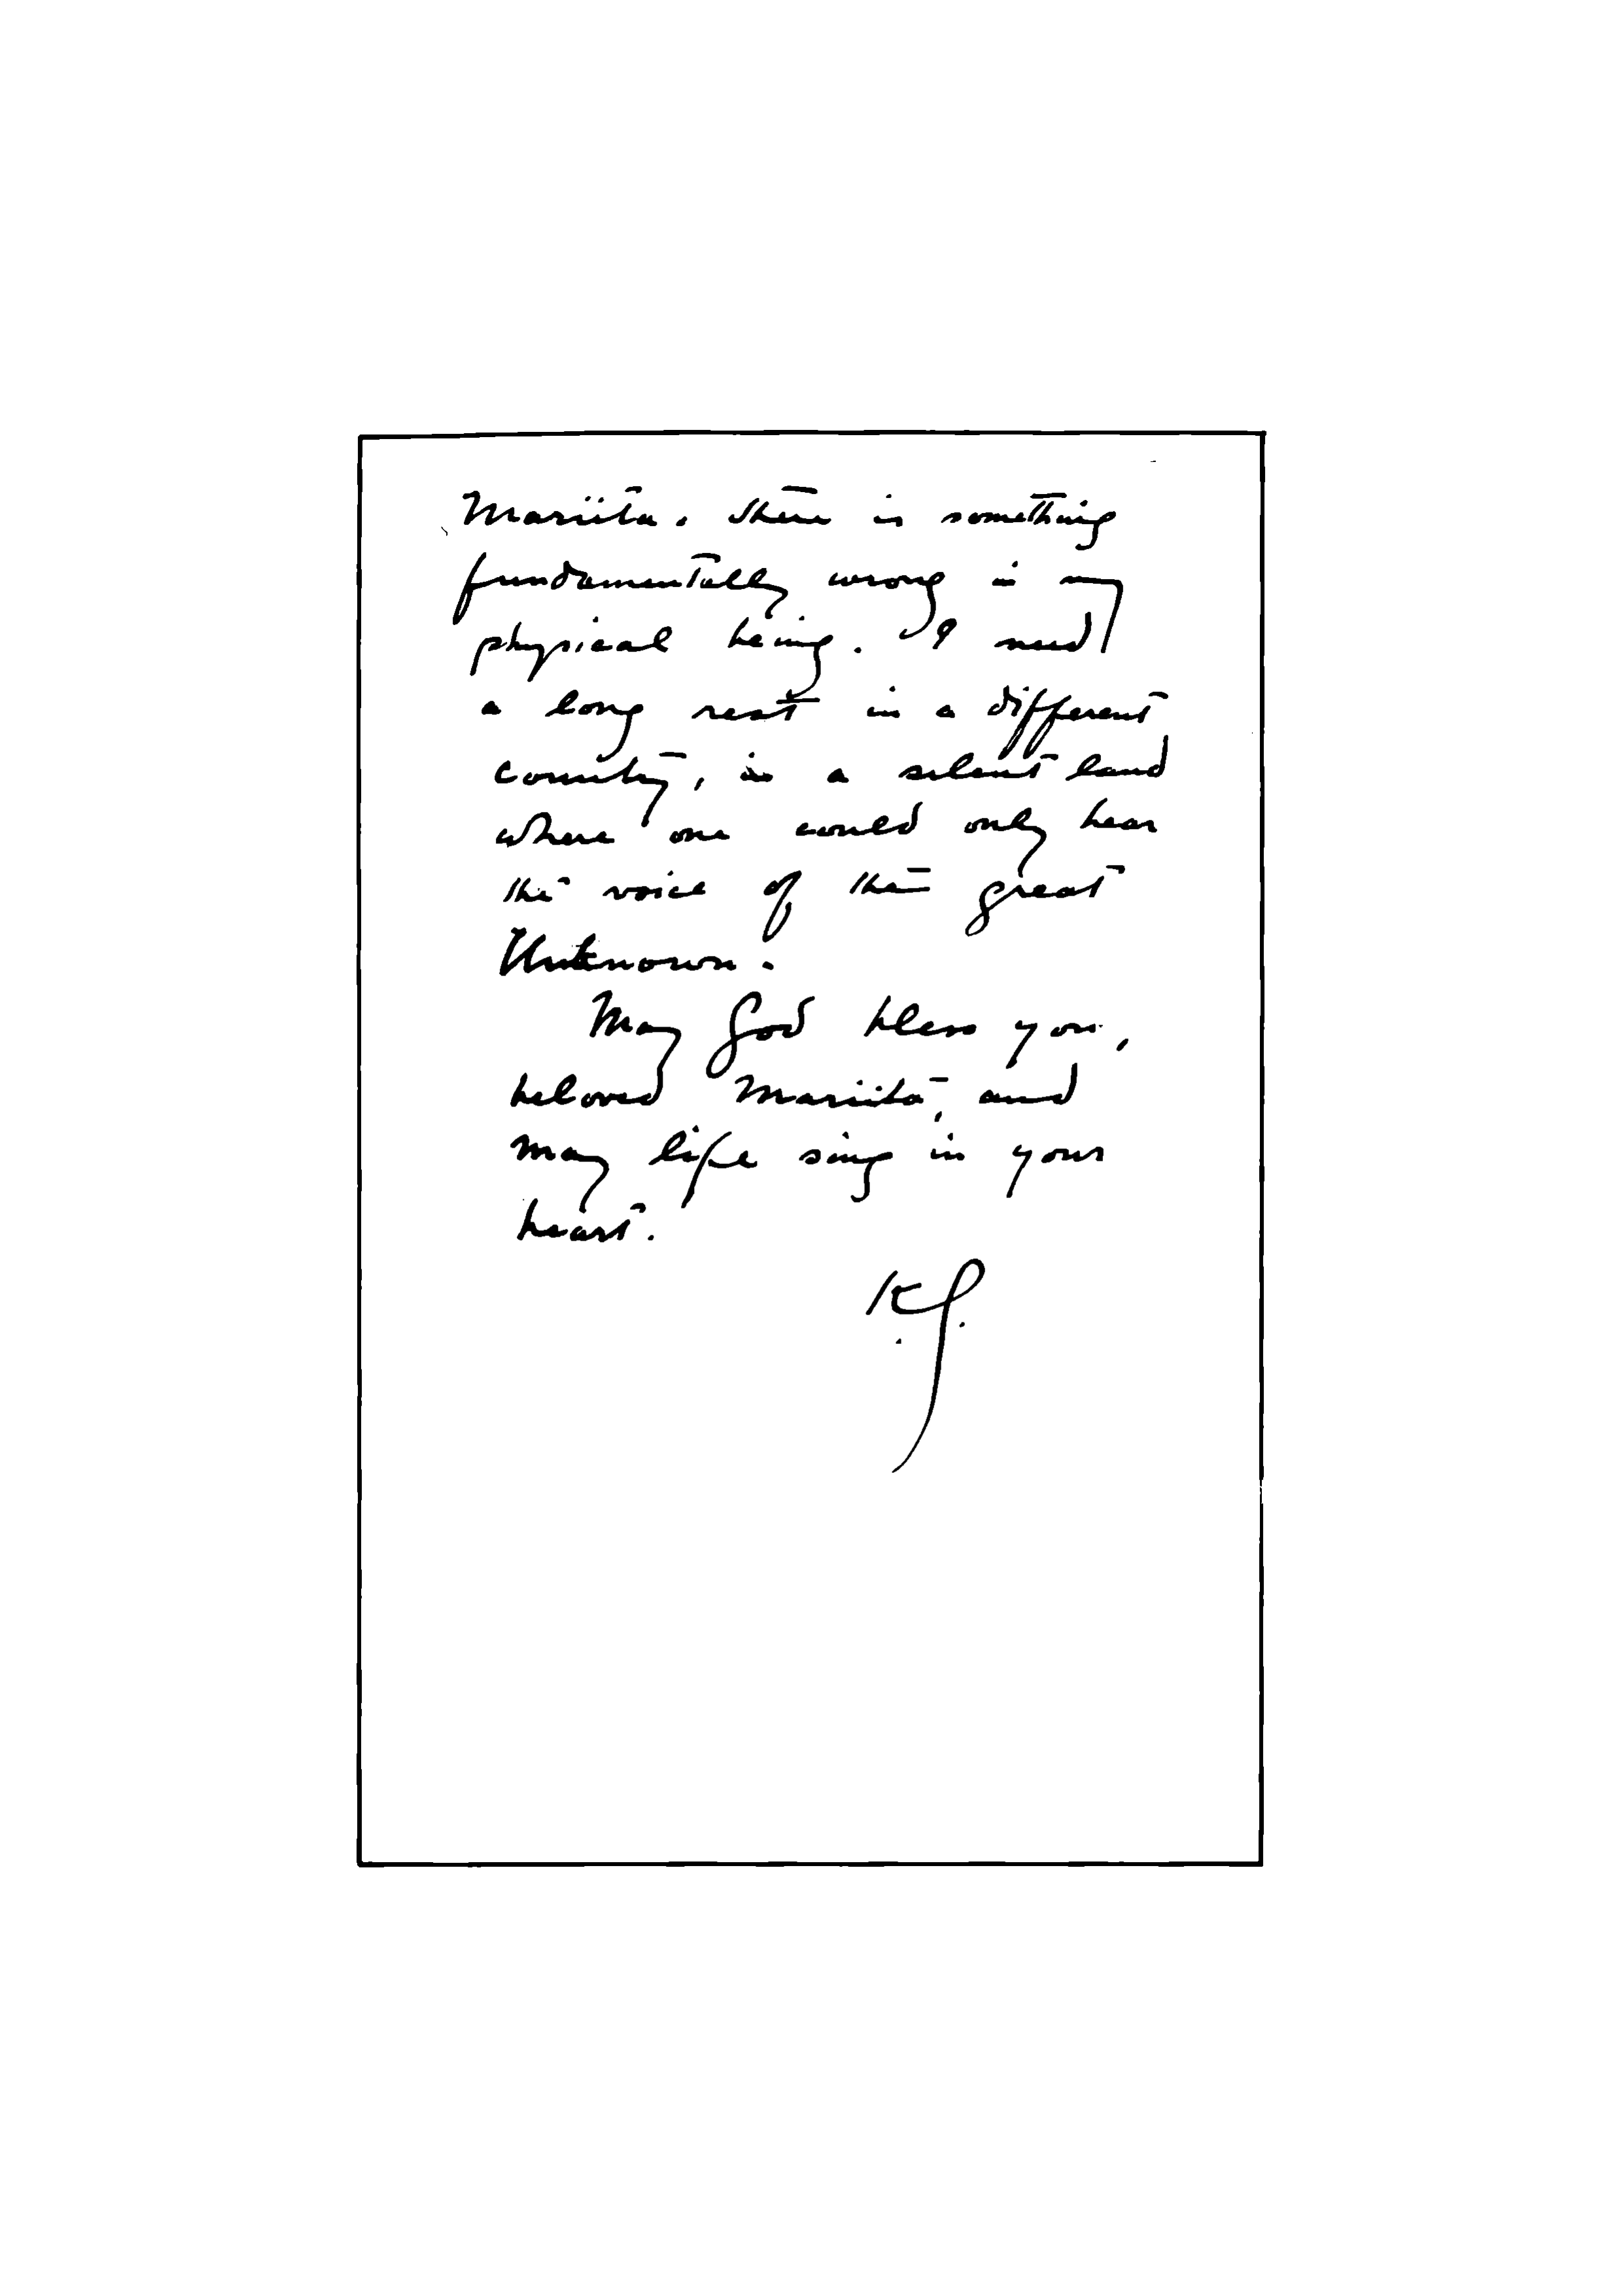 Mariita. There is something
fundamentally wrong in my
physical being. I need
a long rest in a different
country, in a silent land
where one could only hear
the voice of the great
Unknown.
May God bless you,
beloved Mariita, and
may life sing in your
heart.
K.G.